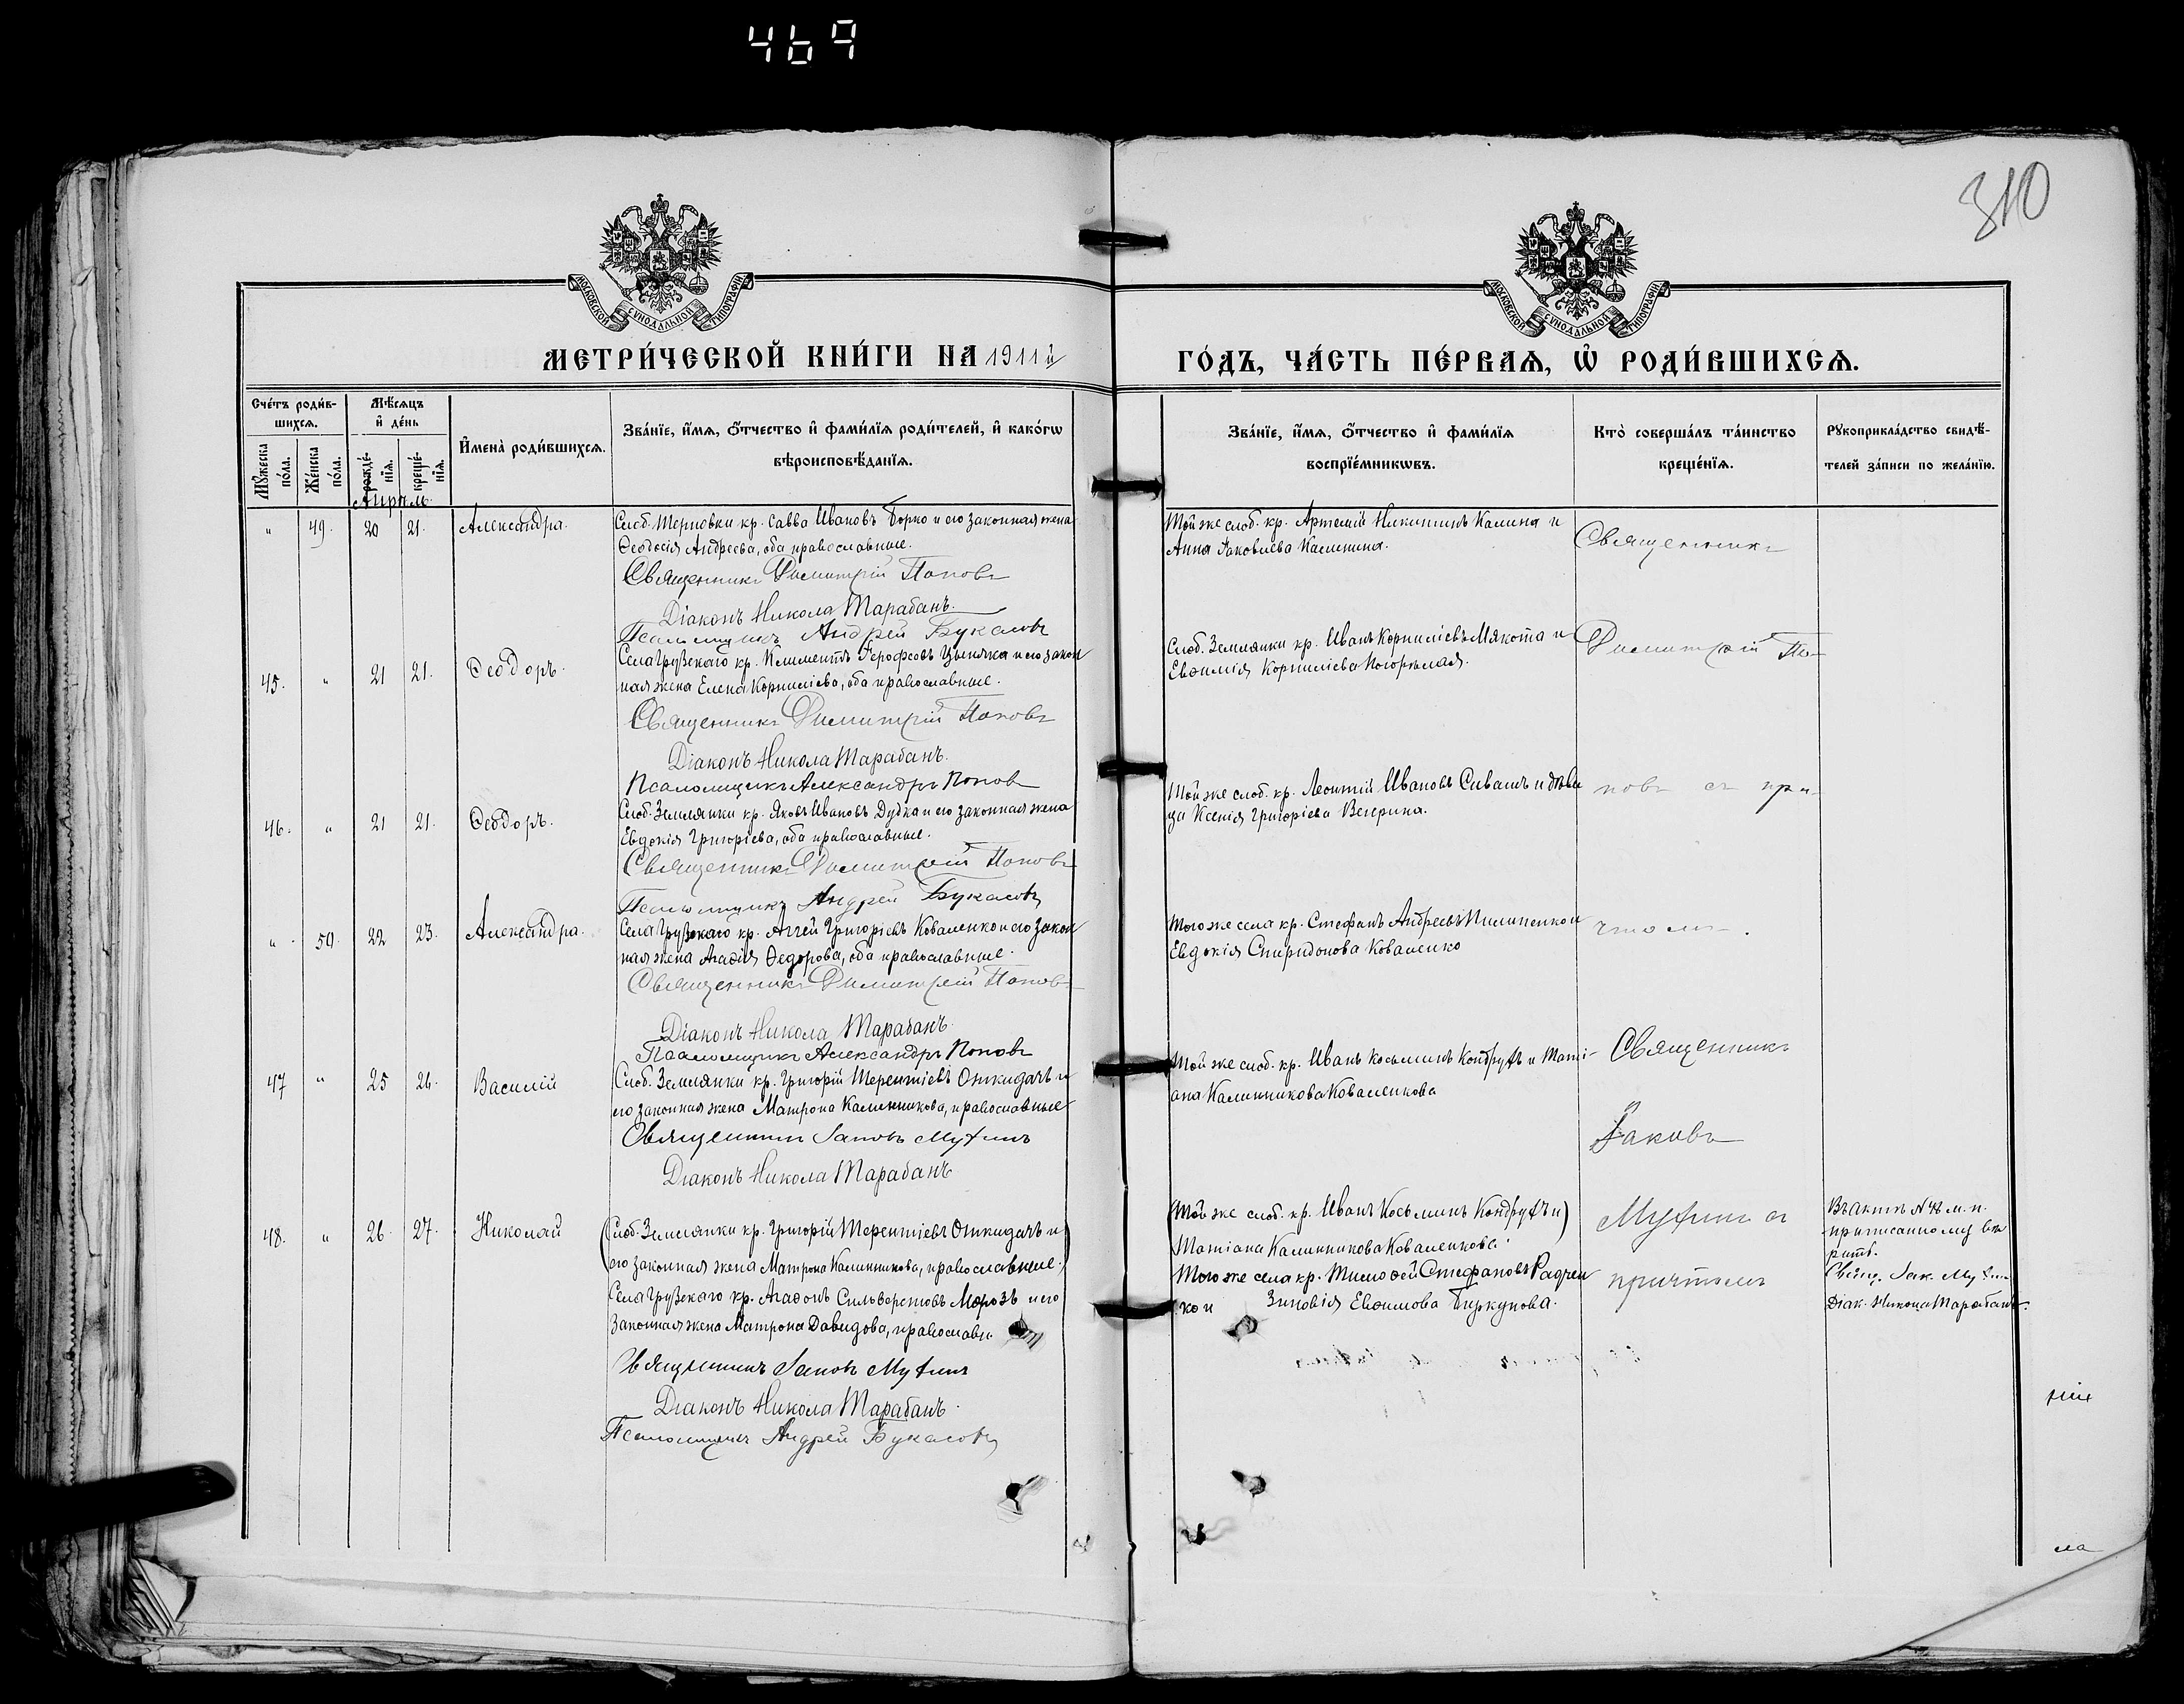 469
310
МОСКОВСКОЙ СУНОДАЛЬНОЙ ТИПОГРАФИИ
МОСКОВСКОЙ СУНОДАЛЬНОЙ ТИПОГРАФИИ
МЕТРИ́ЧЕСКОЙ КНИ́ГИ НА 1911й ГО́ДЪ, ЧА́СТЬ ПЕ́РВАѦ, Ѡ҆ РОДИ́ВШИХСѦ.
Сче́тъ роди́в-
шихсѧ.
Мꙋ́жеска по́ла.
Же́нска по́ла.
Мѣ́сѧцъ
и҆ де́нь
рожде́-нїѧ.
креще́-нїѧ.
И҆мена̀ роди́вшихсѧ.
Зва́нїе, и҆́мѧ, ѻ҆́тчество и҆ фами́лїѧ роди́телей, и҆ како́гѡ
вѣроисповѣ́данїѧ.
Зва́нїе, и҆́мѧ, ѻ҆́тчество и҆ фами́лїѧ
воспрїе́мникѡвъ.
Кто̀ соверша́лъ та́инство
креще́нїѧ.
Рꙋкоприкла́дство свидѣ́-
телей за́писи по жела́нїю.
Апрѣль
" 49. 20 21. Александра.
Слоб. Терновки кр. Савва Ивановъ Борко и его законная жена
Ѳеодосія Андреева, оба православные.
Священникъ Димитрій Поповъ
Діаконъ Никола Тарабанъ.
Псаломщикъ Андрей Букасовъ
Той же слоб. кр. Артемій Никитинъ Калина и
Анна Іаковлева Калинина.
Священникъ
45. " 21 21. Ѳеодоръ.
Села Грузскаго кр. Климентъ Іерофеевъ Цынка и его закон
ная жена Елена Корниліева, оба православные.
Священникъ Димитрій Поповъ
Діаконъ Никола Тарабанъ.
Псаломщикъ Александръ Поповъ
Слоб. Землянки кр. Иванъ Корниліевъ Мякота и
Евѳимія Корниліева Погорѣлая.
Димитрій По-
46. " 21 21. Ѳеодоръ.
Слоб. Землянки кр. Яковъ Ивановъ Дудка и его законная жена
Евдокія Григоріева, оба православные.
Священникъ Димитрій Поповъ
Псаломщикъ Андрей Букасовъ
Той же слоб. кр. Леонтій Ивановъ Сивашъ и дѣви
ца Ксенія Григоріева Венгрина.
повъ съ при-
" 50. 22 23. Александра.
Села Грузскаго кр. Аггей Григоріевъ Коваленко и его закон
ная жена Агаѳія Ѳедорова, оба православные.
Священникъ Димитрій Поповъ
Діаконъ Никола Тарабанъ.
Псаломщикъ Александръ Поповъ
Того же села кр. Стефанъ Андреевъ Пилипенко и
Евдокія Спиридонова Коваленко
чтомъ.
47 " 25 26. Василій
Слоб. Землянки кр. Григорій Терентіевъ Откидачъ и
его законная жена Матрона Калинникова, православные
Священникъ Іаковъ Мухинъ
Діаконъ Никола Тарабанъ
Той же слоб. кр. Иванъ Косьминъ Кондруѣъ и Тати-
ана Калинникова Коваленкова
Священникъ
Іаковъ
48. " 26. 27. Николай
(Слоб. Землянки кр. Григорій Терентіевъ Откидачъ и
его законная жена Матрона Калинникова, православные.)
Села Грузскаго кр. Агаѳонъ Сильверстовъ Морозъ и его
законная жена Матрона Давидова, православн.
Священникъ Іаковъ Мухинъ
Діаконъ Никола Тарабанъ.
Псаломщикъ Андрей Букасовъ
Той же слоб. кр. Иванъ Косьминъ Кондруѣъ и)
Татіана Калинникова Коваленкова.
Того же села кр. Тимоѳей Стефановъ Радчен
ко и Зиновія Евѳимова Биркунова.
Мухинъ съ
причтомъ
Въ актѣ № 48 м. п.
приписанному вѣ
рить.
Свящ. Іак. Мухин
Діак. Никола Тарабанъ.